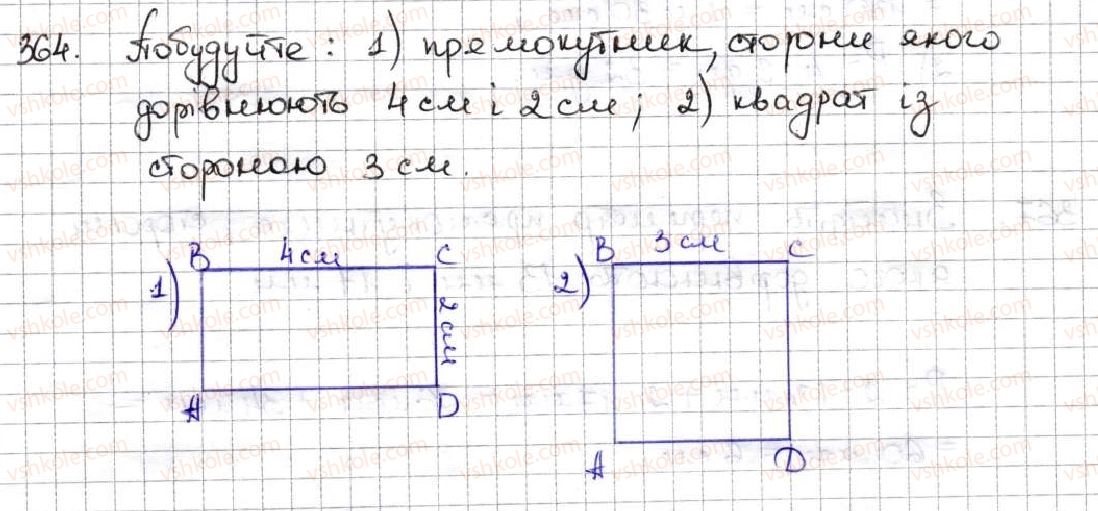 364. Побудуйте : 1) прямокутник, сторони якого
дорівнюють 4 см і 2 см; 2) квадрат із
стороною 3 см.
1) B 4 см C
2 см
A D
2) B 3 см C
A D
vshkole.com